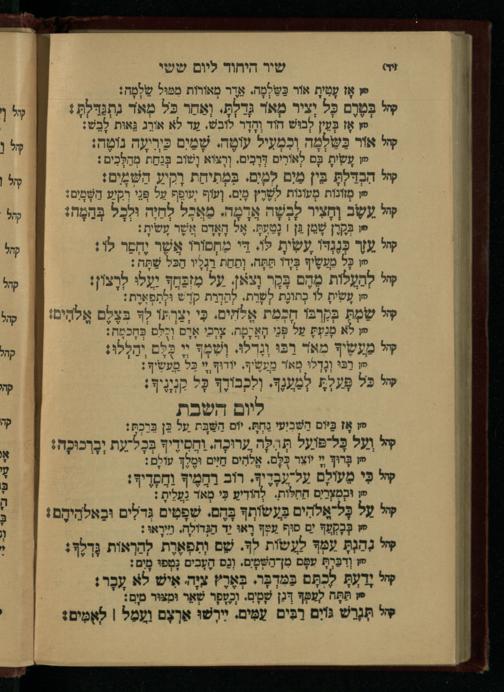 שיר היחוד ליום ששי יד)
חזן אָז עָטִיתָ אוֹר כַּשַּׂלְמָה. אַדֶּר מְאוֹרוֹת מִמּוּל שַׂלְמָה:
קהל בְּטֶרֶם כָּל יְצִיר מְאֹד גָּדַלְתָּ. וְאַחַר כֹּל מְאֹד נִתְגַּדַּלְתָּ:
חזן אָז בְּעֵין לְבוּשׁ הוֹד וְהָדָר לוֹבֵשׁ. עַד לֹא אוֹרֵג גֵּאוּת לָבֵשׁ:
קהל אוֹר כַּשַּׂלְמָה וְכַמְעִיל עוֹטֶה. שָׁמַיִם כַּיְרִיעָה נוֹטֶה:
חזן עָשִׂיתָ בָּם לְאוֹרִים דְּרָכִים. וְרָצוֹא וָשׁוֹב בְּנַחַת מְהַלְּכִים:
קהל הִבְדַּלְתָּ בֵּין מַיִם לְמָיִם. בִּמְתִיחַת רְקִיעַ הַשָּׁמָיִם:
חזן מְזוֹנוֹת מְעוֹנוֹת לְשֶׁרֶץ מַיִם. וְעוֹף יְעוֹפֵף עַל פְּנֵי רְקִיעַ הַשָּׁמָיִם:
קהל עֵשֶׂב וְחָצִיר לָבְשָׁה אֲדָמָה. מַאֲכָל לְחַיָּה וּלְכָל בְּהֵמָה:
חזן בְּקֶרֶן שֶׁמֶן גַּן | נָטַעְתָּ. אֶל הָאָדָם אֲשֶׁר עָשִׂיתָ:
קהל עֵזֶר כְּנֶגְדּוֹ עָשִׂיתָ לּוֹ. דֵּי מַחְסוֹרוֹ אֲשֶׁר יֶחְסַר לוֹ:
חזן כָּל מַעֲשֶׂיךָ בְּיָדוֹ תַּתָּה. וְתַחַת רַגְלָיו הַכֹּל שַׁתָּה:
קהל לְהַעֲלוֹת מֵהֶם בָּקָר וָצֹאן. עַל מִזְבַּחֲךָ יַעֲלוּ לְרָצוֹן:
חזן עָשִׂיתָ לוֹ כְּתוֹנֶת לְשָׁרֵת. לְהַדְרַת קֹדֶשׁ וּלְתִפְאָרֶת:
קהל שַׂמְתָּ בְּקִרְבּוֹ חָכְמַת אֱלֹהִים. כִּי יְצַרְתּוֹ לְךָ בְּצֶלֶם אֱלֹהִים:
חזן לֹא מָנַעְתָּ עַל פְּנֵי הָאֲדָמָה. צָרְכֵי אָדָם וְכֻלָּם בְּחָכְמָה:
קהל מַעֲשֶׂיךָ מְאֹד רַבּוּ וְגָדְלוּ. וְשִׁמְךָ יְיָ כֻּלָּם יְהַלֵּלוּ:
חזן רַבּוּ וְגָדְלוּ מְאֹד מַעֲשֶׂיךָ. יוֹדוּךָ יְיָ כָּל מַעֲשֶׂיךָ:
קהל כֹּל פָּעַלְתָּ לְמַעֲנֶךָ. וְלִכְבוֹדְךָ כָּל קִנְיָנֶיךָ:
ליום השבת
חזן אָז בַּיּוֹם הַשְּׁבִיעִי נַחְתָּ. יוֹם הַשַּׁבָּת עַל כֵּן בֵּרַכְתָּ:
קהל וְעַל כָּל־פּוֹעַל תְּהִלָּה עֲרוּכָה. וַחֲסִידֶיךָ בְּכָל־עֵת יְבָרְכוּכָה:
חזן בָּרוּךְ יְיָ יוֹצֵר כֻּלָּם. אֱלֹהִים חַיִּים וּמֶלֶךְ עוֹלָם:
קהל כִּי מֵעוֹלָם עַל־עֲבָדֶיךָ. רוֹב רַחֲמֶיךָ וַחֲסָדֶיךָ:
חזן וּבְמִצְרַיִם הַחִלּוֹתָ. לְהוֹדִיעַ כִּי מְאֹד נַעֲלֵיתָ:
קהל עַל כָּל־אֱלֹהִים בַּעֲשׂוֹתְךָ בָּהֶם. שְׁפָטִים גְּדֹלִים וּבֵאלֹהֵיהֶם:
חזן בְּבָקְעֲךָ יַם סוּף עַמְּךָ רָאוּ יַד הַגְּדוֹלָה. וַיִּירָאוּ:
קהל נִהַגְתָּ עַמְּךָ לַעֲשׂוֹת לָךְ. שֵׁם וְתִפְאֶרֶת לְהַרְאוֹת גָּדְלֶךָ:
חזן וְדִבַּרְתָּ עִמָּם מִן־הַשָּׁמָיִם. וְגַם הֶעָבִים נָטְפוּ מָיִם:
קהל יָדַעְתָּ לֶכְתָּם בַּמִּדְבָּר. בְּאֶרֶץ צִיָּה אִישׁ לֹא עָבָר:
חזן תַּתָּה לְעַמְּךָ דְּגַן שָׁמָיִם. וְכֶעָפָר שְׁאֵר וּמִצּוּר מָיִם:
קהל תְּגָרֵשׁ גּוֹיִם רַבִּים עַמִּים. יִירְשׁוּ אַרְצָם וַעֲמַל | לְאֻמִּים: